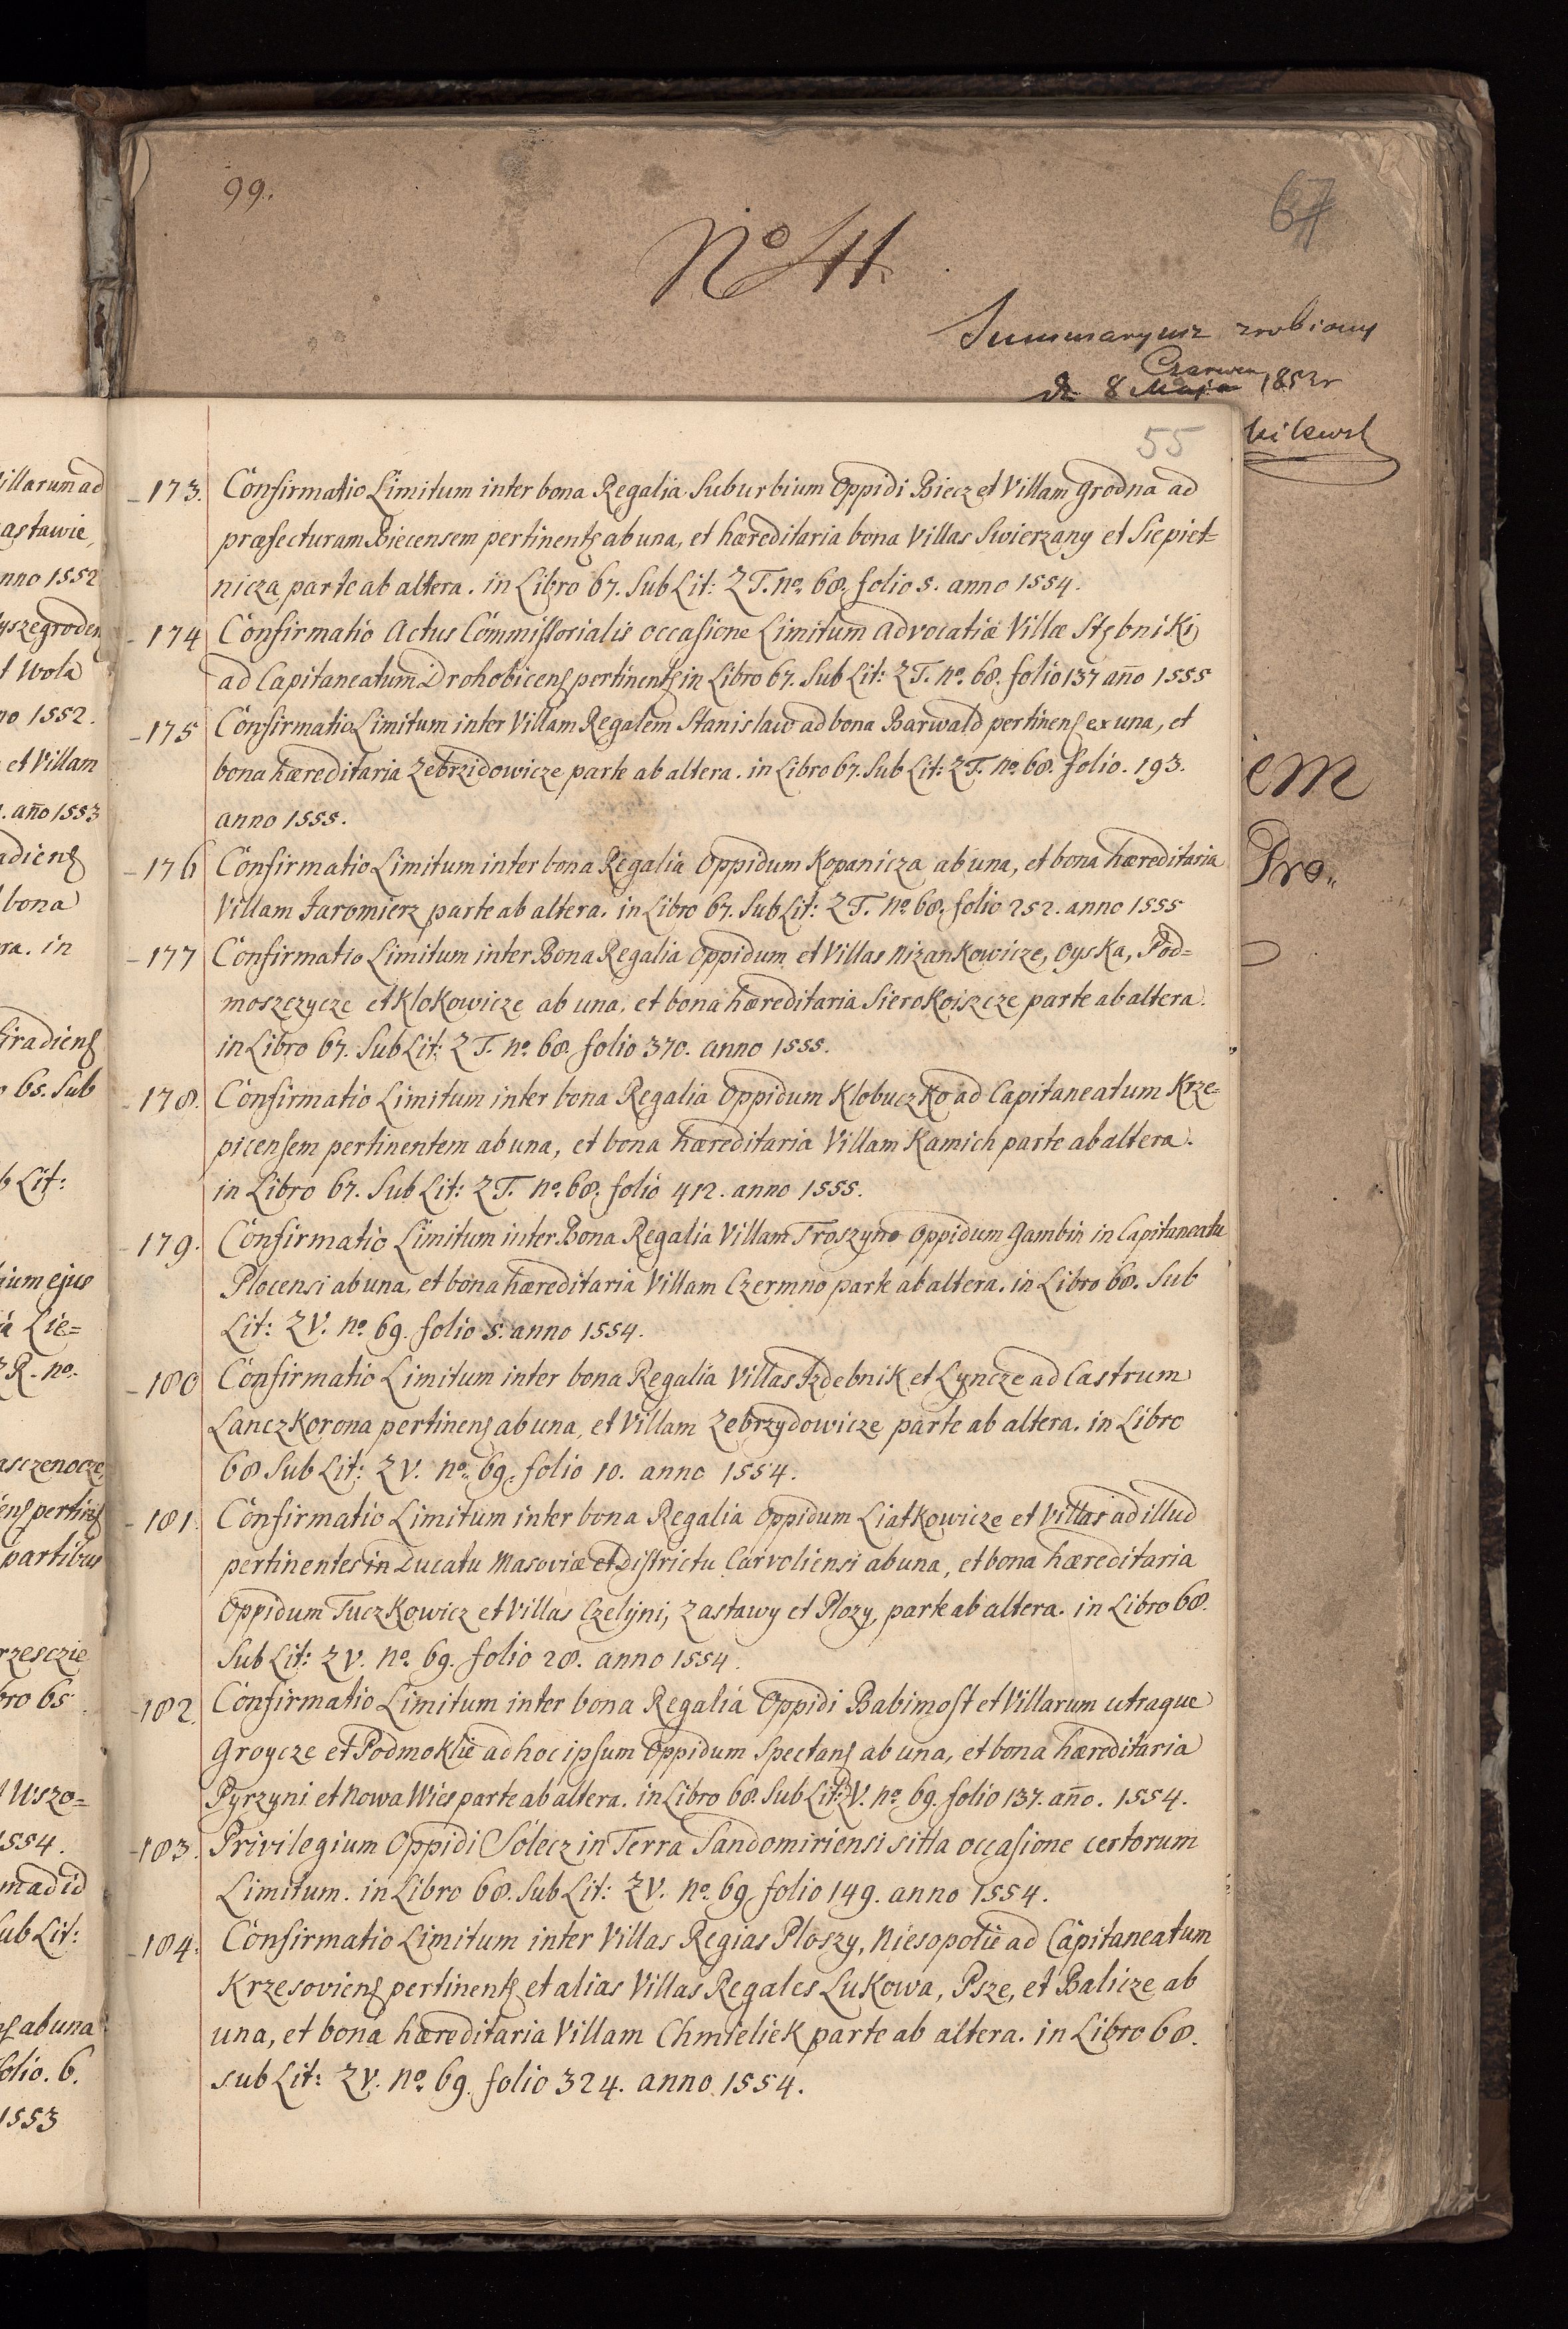 99.
67
No 41.
Summaryusz zrobiony
Czerwca
d. 8 Maja 1852r
55
173. Confirmatio Limitum inter bona Regalia Suburbium Oppidi Biecz et Villam Grodna ad
præfecturam Biecensem pertinentz ab una, et hæreditaria bona Villas Swierzany et Siepiet=
nicza parte ab altera. in Libro 67. Sub Lit: ZT. no. 68. folio 5. anno 1554.
174 Confirmatio Actus Commissorialis occasione Limitum Advocatiæ Villæ Stębniki
ad Capitaneatum Drohobicens pertinents in Libro 67. Sub Lit: ZT. no. 68. folio 137 año 1555
175 Confirmatio Limitum inter Villam Regalem Stanislaw ad bona Barwald pertinens ex una, et
bona hæreditaria Zebrzidowicze parte ab altera. in Libro 67. Sub Lit: ZT. no. 68. folio. 193.
anno 1555.
176 Confirmatio Limitum inter bona Regalia Oppidum Kopanicza ab una, et bona hæreditaria
Villam Jaromierz parte ab altera. in Libro 67. Sub Lit: ZT. no. 68. folio 252. anno 1555
177 Confirmatio Limitum inter Bona Regalia Oppidum et Villas Nizankowicze, Oyska, Pod=
moszczycze et Klokowicze ab una, et bona hæreditaria Sierokoiszcze parte ab altera.
in Libro 67. Sub Lit: ZT. no. 68. folio 370. anno 1555.
178. Confirmatio Limitum inter bona Regalia Oppidum Klobuczko ad Capitaneatum Krze=
picensem pertinentem ab una, et bona hæreditaria Villam Kamich parte ab altera.
in Libro 67. Sub Lit: ZT. no. 68. folio 412. anno 1555.
179. Confirmatio Limitum inter Bona Regalia Villam Troszyno Oppidum Gambin in Capitaneatu
Plocensi ab una, et bona hæreditaria Villam Czermno parte ab altera. in Libro 68. Sub
Lit: ZV. no. 69. folio 5. anno 1554.
180 Confirmatio Limitum inter bona Regalia Villas Izdebnik et Lyncze ad Castrum
Lanczkorona pertinens ab una, et Villam Zebrzydowicze parte ab altera. in Libro
68 Sub Lit: ZV. no. 69. folio 10. anno 1554.
181. Confirmatio Limitum inter bona Regalia Oppidum Liatkowicze et Villas ad illud
pertinentes in Ducatu Masoviæ et Districtu Carvoliensi ab una, et bona hæreditaria
Oppidum Tuczkowicz et Villas Czelijni, Zastawy et Plozy, parte ab altera. in Libro 68.
Sub Lit: ZV. no. 69. folio 28. anno 1554.
182. Confirmatio Limitum inter bona Regalia Oppidi Babimost et Villarum utraque
Groycze et Podmoklie ad hoc ipsum Oppidum Spectans ab una, et bona hæreditaria
Pyrzyni et Nowa Wies parte ab altera. in Libro 68. Sub Lit: ZV. no. 69. folio 137. año. 1554.
183. Privilegium Oppidi Solecz in Terra Sandomiriensi sitta occasione certorum
Limitum. in Libro 68. Sub Lit: ZV. no. 69. folio 149. anno 1554.
184. Confirmatio Limitum inter Villas Regias Ploszy, Niesopotie ad Capitaneatum
Krzesoviens pertinents et alias Villas Regales Lukowa, Psze, et Balicze ab
una, et bona hæreditaria Villam Chmieliek parte ab altera. in Libro 68.
sub Lit: ZV. no. 69. folio 324. anno 1554.